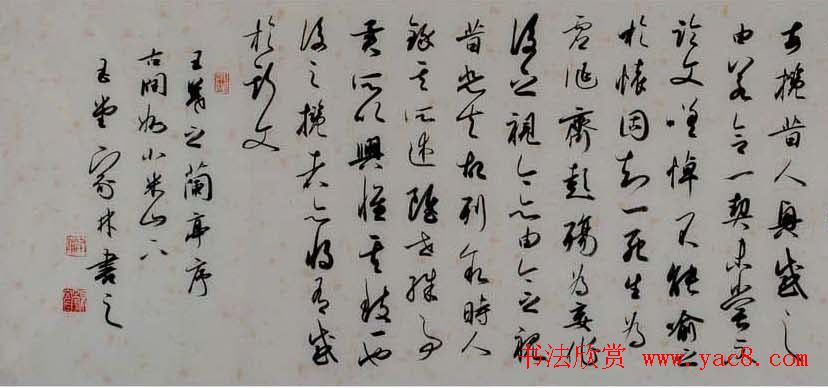 每攬昔人興感之
由若合一契未嘗不
臨文嗟悼不能喻之
於懷固知一死生為
虛誕齊彭殤為妄作
後之視今亦由今之視
昔悲夫故列叙時人
錄其所述雖世殊事
異所以興懷其致一也
後之攬者亦將有感
於斯文
王羲之蘭亭序
古閩小米山下
玉堂林書之
书法欣赏 www.yac8.com